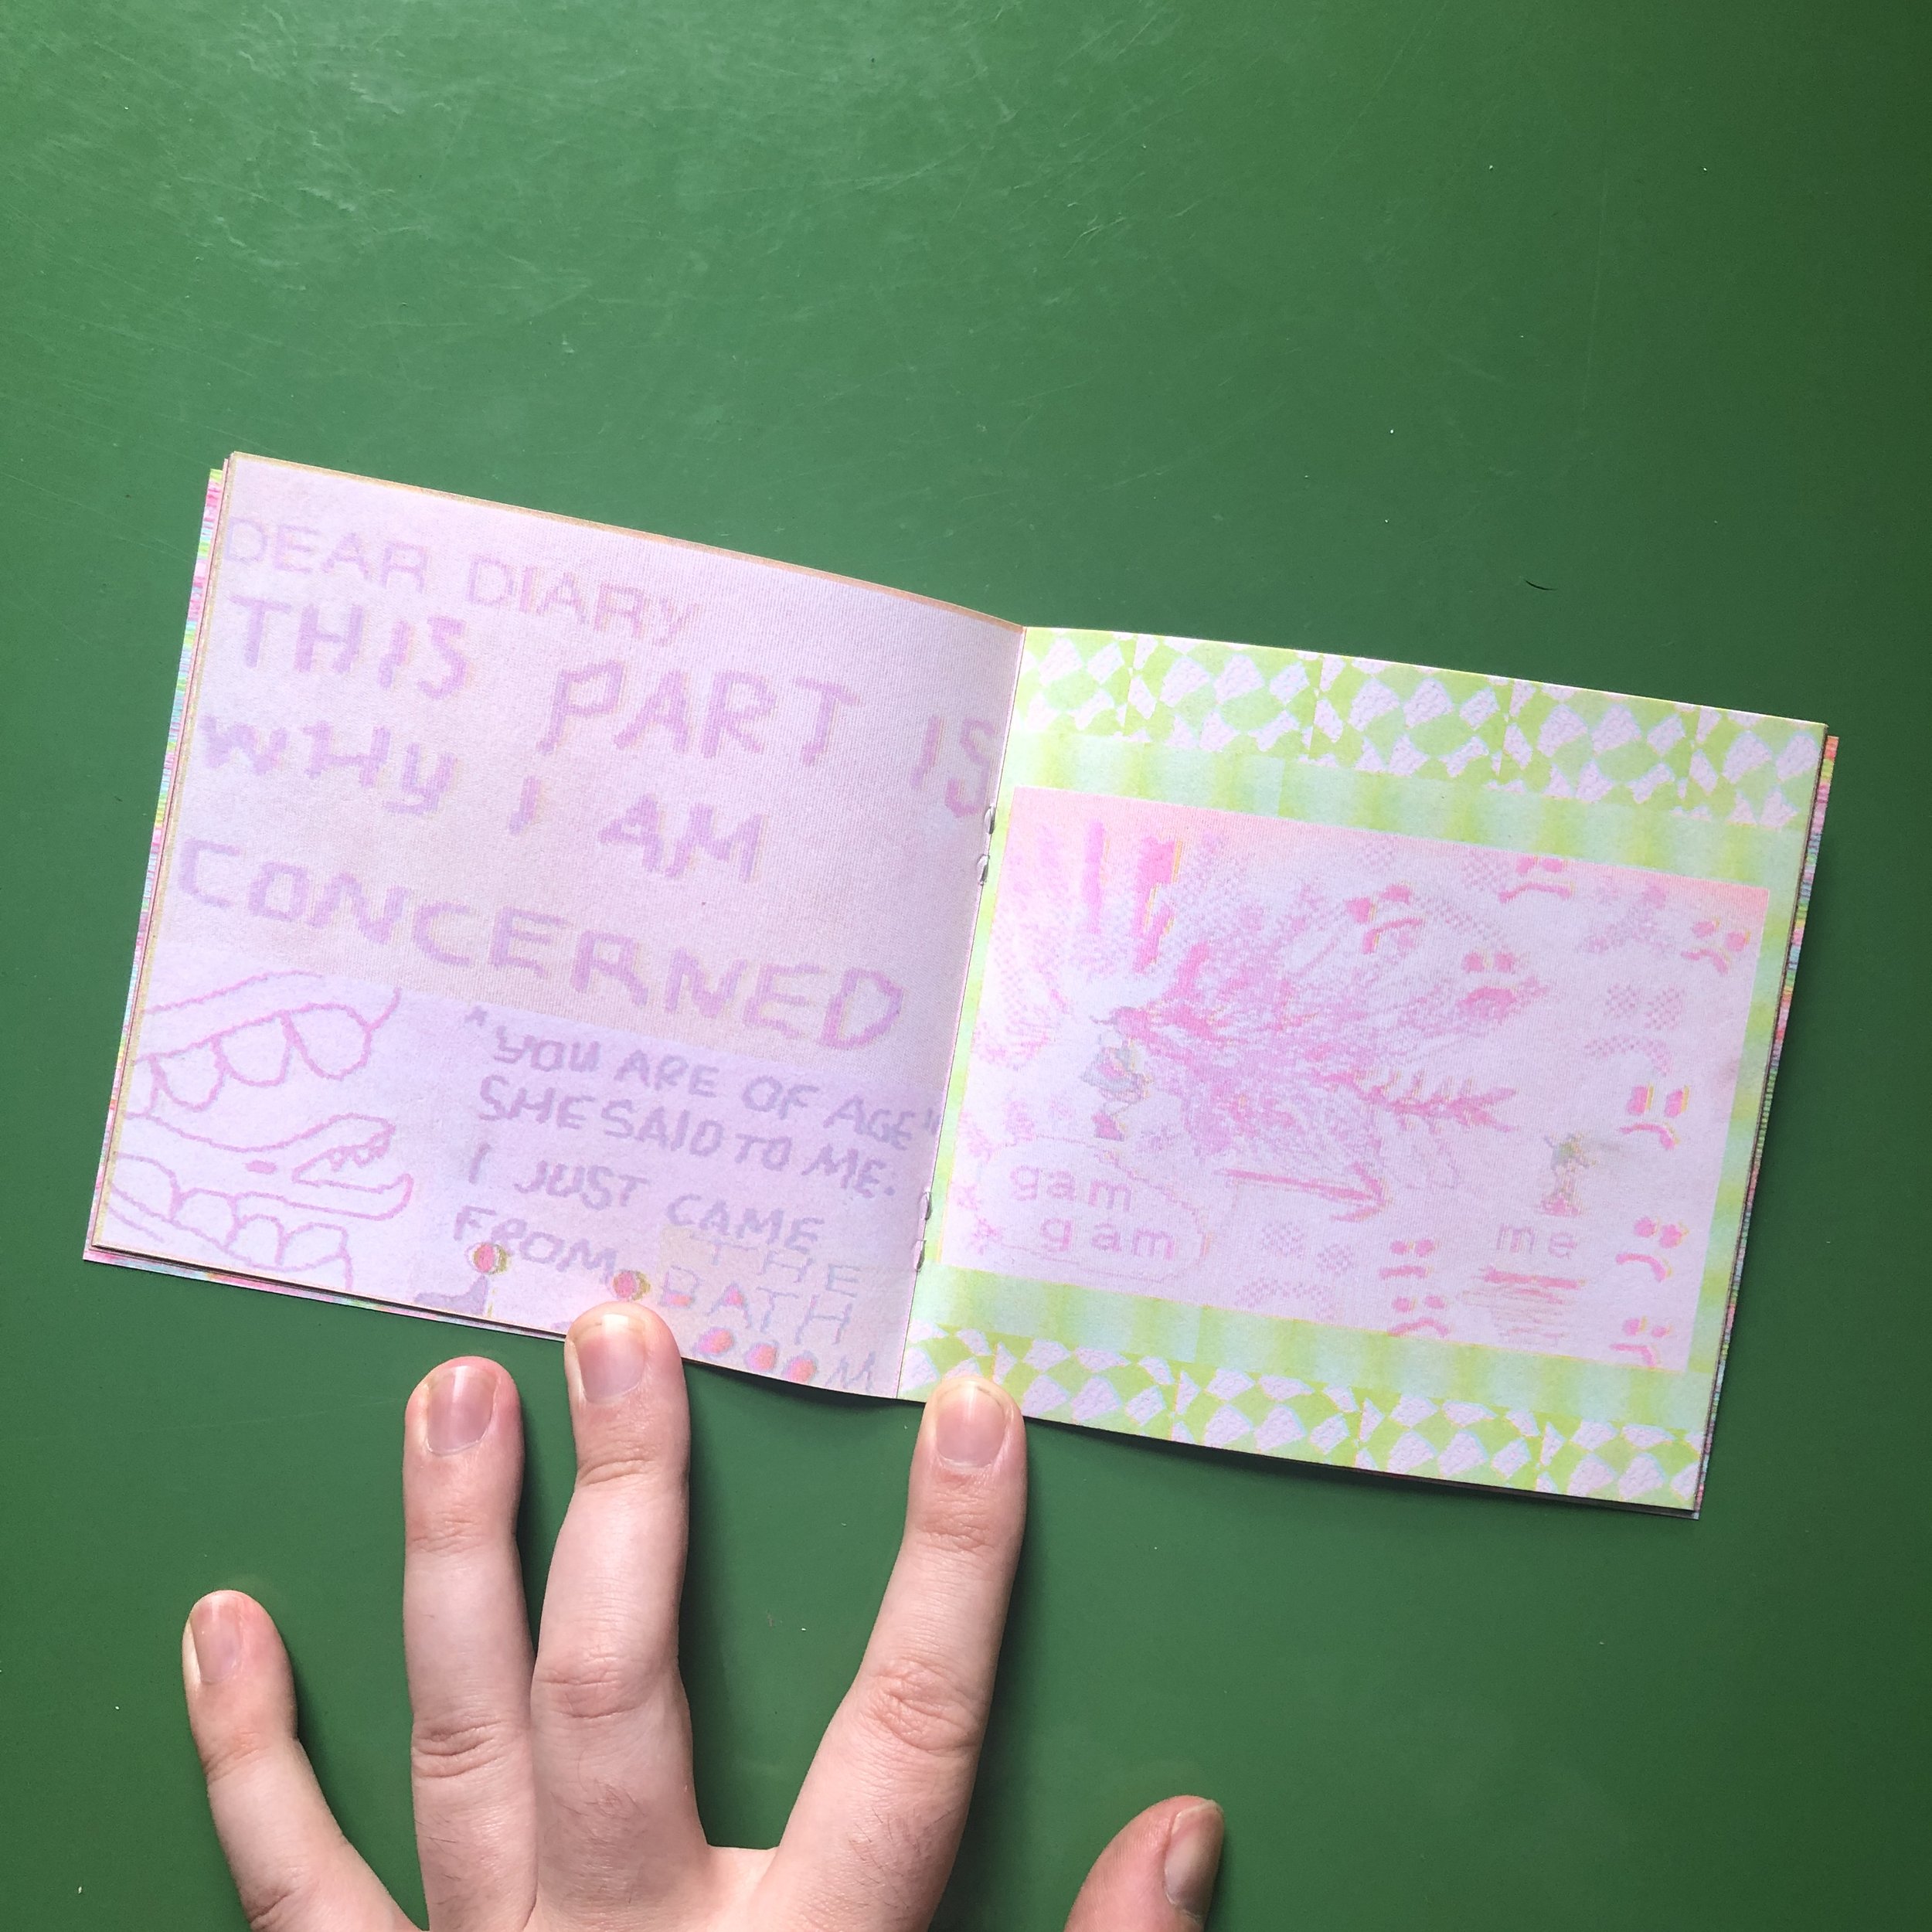 DEAR DIARY
THIS PART IS
WHY I AM
CONCERNED
"YOU ARE OF AGE"
SHE SAID TO ME.
I JUST CAME
FROM THE
BATH
OOOM
gam
gam
me